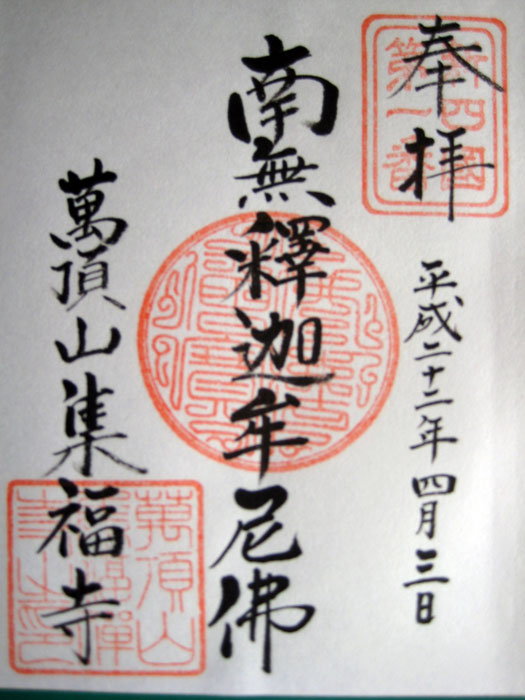 奉拝
新四國
第一番
平成二十二年四月三日
南無釋迦牟尼佛
萬頂山集福寺
萬頂山